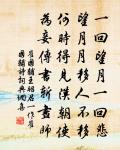 一回望月一回悲
望月月移人不移
何時得見漢朝使
為妾傳書斬畫師
崔國輔王昭君一作崔
國輔詩詞典